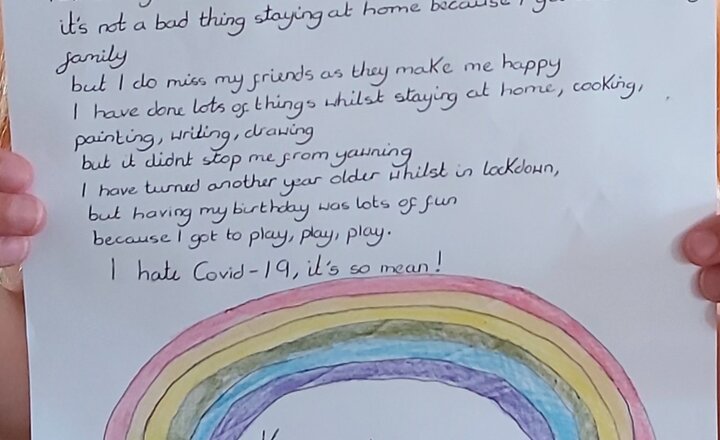 it's not a bad thing staying at home because I
family
but I do miss my friends as they make me happy
I have done lots of things whilst staying at home, cooking,
painting, writing, drawing
but it didnt stop me from yawning
I have turned another year older whilst in lockdown,
but having my birthday was lots of fun
because I got to play, play, play.
I hate Covid-19, it's so mean!